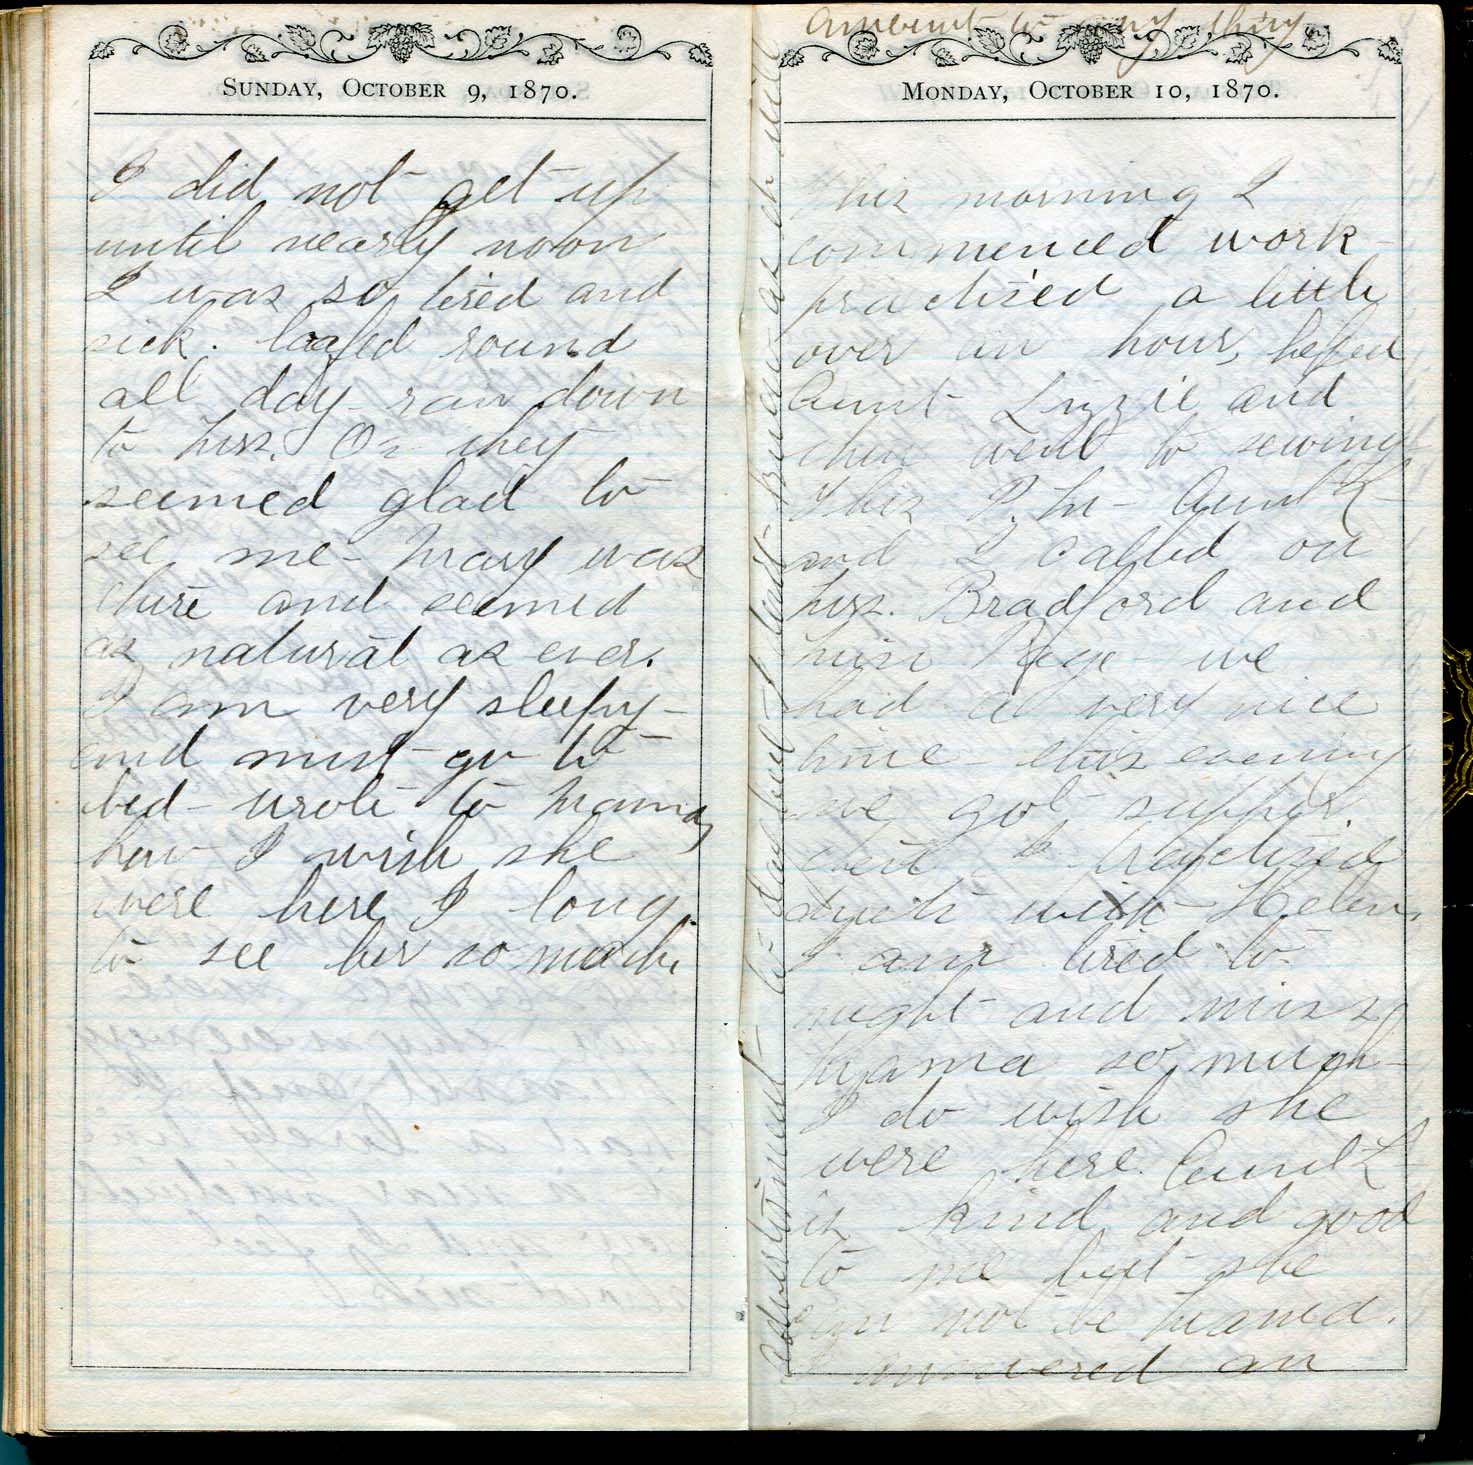 SUNDAY, OCTOBER 9, 1870.
I did not get up
until nearly noon
I was so tired and
sick. loafed round
all day - ran down
to Mrs. Os they
seemed glad to
see me - Mary was
there and seemed
as natural as ever.
I am very sleepy -
and must go to
bed - wrote to Mama,
how I wish she
were here, I long
to see her so much.
MONDAY, OCTOBER 10, 1870.
This morning I
commenced work -
practised a little
over an hour, helped
Aunt Lizzie and
then went to sewing
This P.M - Aunt L
and I called on
Mrs. Bradford and
Miss Page - we
had a very nice
time - this evening
we got supper.
and I practised
duets with Helen.
I am tired to
night and miss
Mama so much -
I do wish she
were here. Aunt L
is kind and good
to me but she
can not be Mama.
I answered an
advertisement - to
amount to any thing